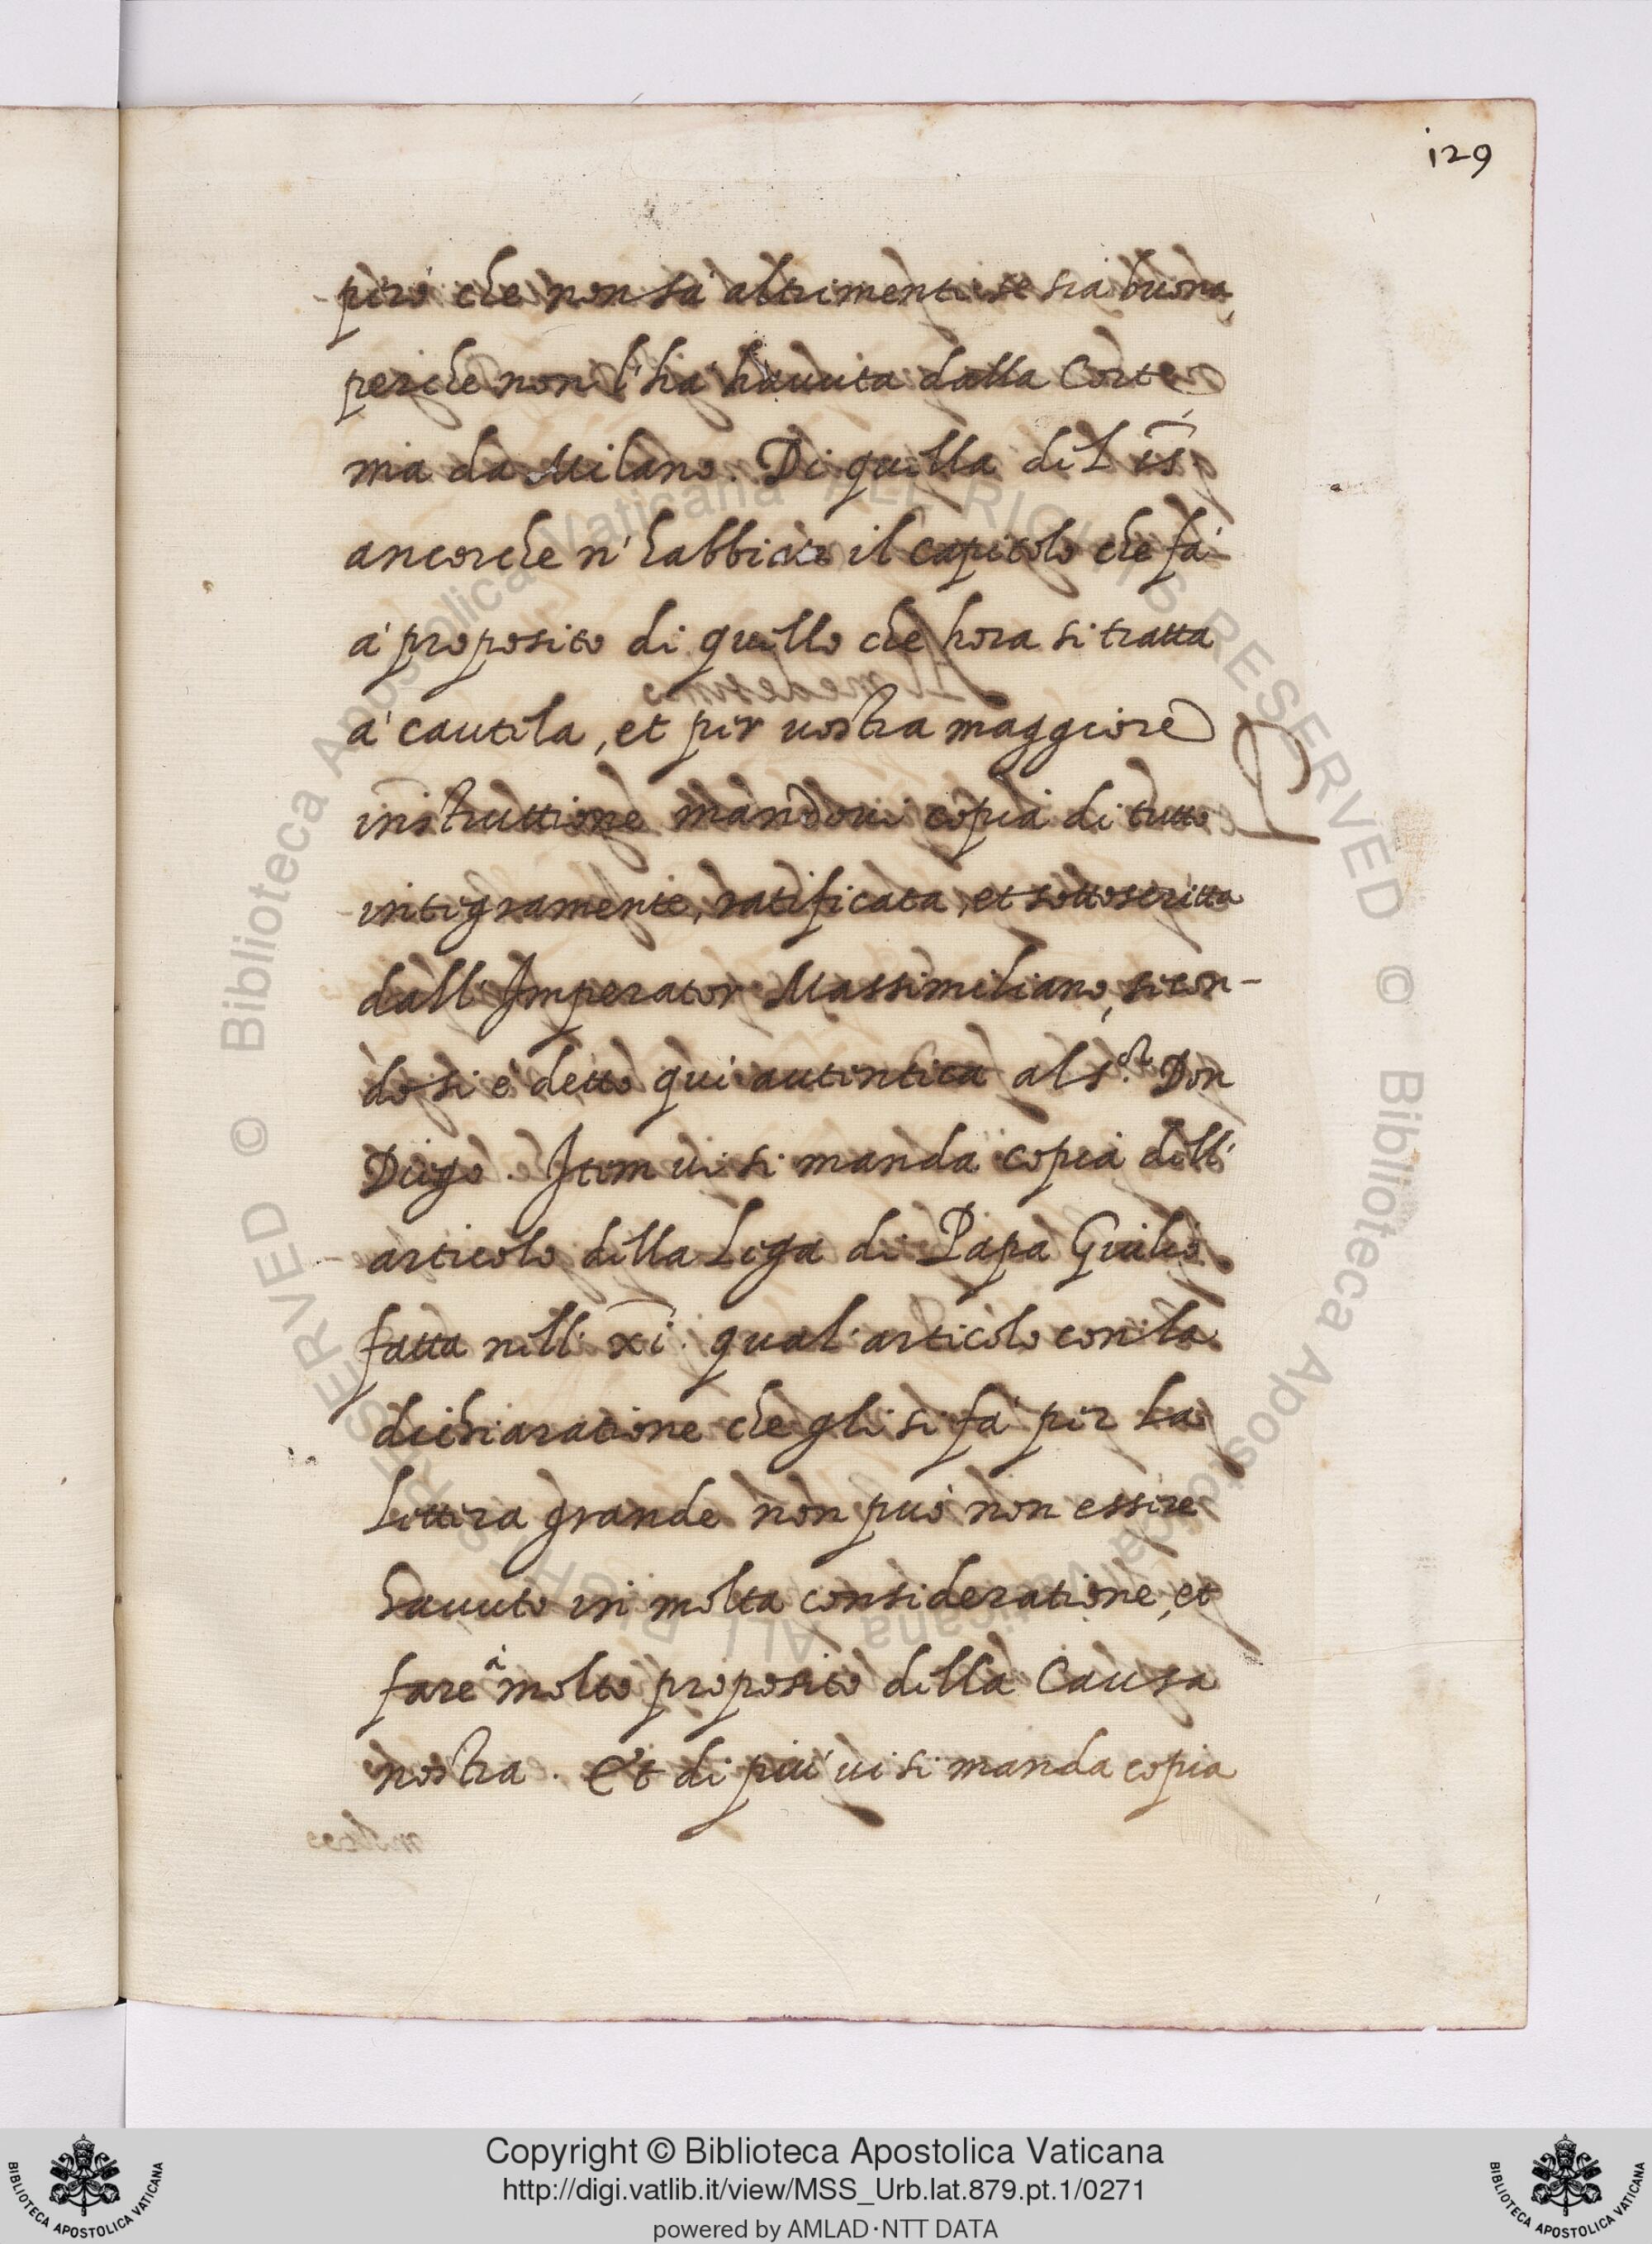 129
però che non sà altrimenti se sia buona,
perche non l'ha havuta dalla Corte
ma da Milano. Di quella del is
ancorche n'habbiate il capitolo che fà
à proposito di quello che hora si tratta
à cautela, et per vostra maggiore
instruttione mandovi copia di tutto
integramente, ratificata, et sottoscritta
dall'Imperator Massimiliano, secon-
do si è detto qui autentica al s.or Don
Diego. Item vi si manda copia dell'
articolo della Lega di Papa Giulio
fatta nell' xi. qual articolo con la
dichiaratione che gli si fà per la
Lettera grande non può non essere
havuto in molta consideratione, et
fare à molto proposito della Causa
nostra. Et di più vi si manda copia
© Biblioteca Apostolica Vaticana ALL RIGHTS RESERVED
© Biblioteca Apostolica Vaticana ALL RIGHTS RESERVED
Copyright © Biblioteca Apostolica Vaticana
http://digi.vatlib.it/view/MSS_Urb.lat.879.pt.1/0271
powered by AMLAD·NTT DATA
BIBLIOTECA APOSTOLICA VATICANA
BIBLIOTECA APOSTOLICA VATICANA